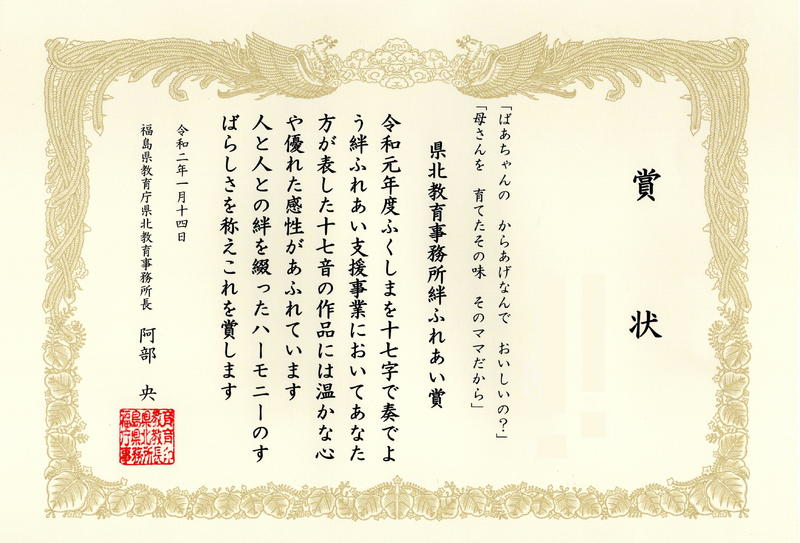 賞状
「ばあちゃんの　からあげなんで　おいしいの？」
「母さんを　育てたその味　そのママだから」
県北教育事務所絆ふれあい賞
令和元年度ふくしまを十七字で奏でよ
う絆ふれあい支援事業においてあなた
方が表した十七音の作品には温かな心
や優れた感性があふれています
人と人との絆を綴ったハーモニーのす
ばらしさを称えこれを賞します
令和二年一月十四日
福島県教育庁県北教育事務所長　阿部　央